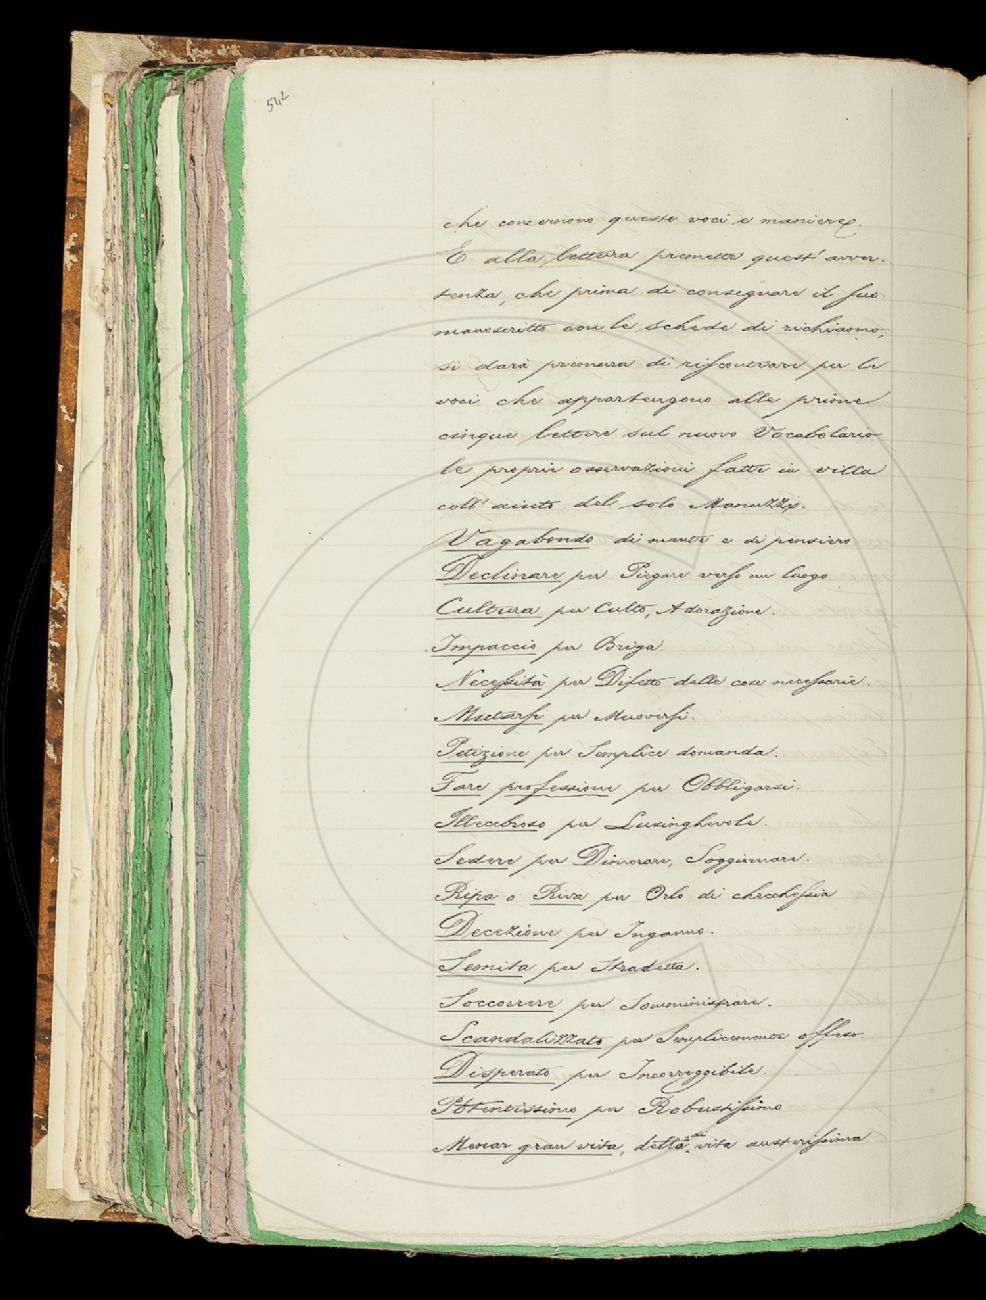 542
che concernono queste voci e maniere.
E alla lettura premette quest' avver-
tenza, che prima di consegnare il suo
manoscritto con le schede di richiamo,
si darà premura di riscontrare per le
voci che appartengono alle prime
cinque lettere sul nuovo Vocabolario
le proprie osservazioni fatte in villa
coll' aiuto del solo Manuzzi.
Vagabondo di mente e di pensiero
Declinare per Piegare verso un luogo
Cultura per Culto, Adorazione.
Impaccio per Briga.
Necessità per Difetto delle cose necessarie.
Mutarsi per Muoversi.
Petizione per Semplice domanda.
Fare professione per Obbligarsi.
Illecebroso per Lusinghevole.
Sedere per Dimorare, Soggiornare.
Ripa o Riva per Orlo di checchessia
Decezione per Inganno.
Semita per Stradetta.
Soccorrere per Somministrare.
Scandalizzato per Semplicemente offeso
Disperato per Incorreggibile.
Potentissimo per Robustissimo
Menar gran vita, detto di vita austerissima